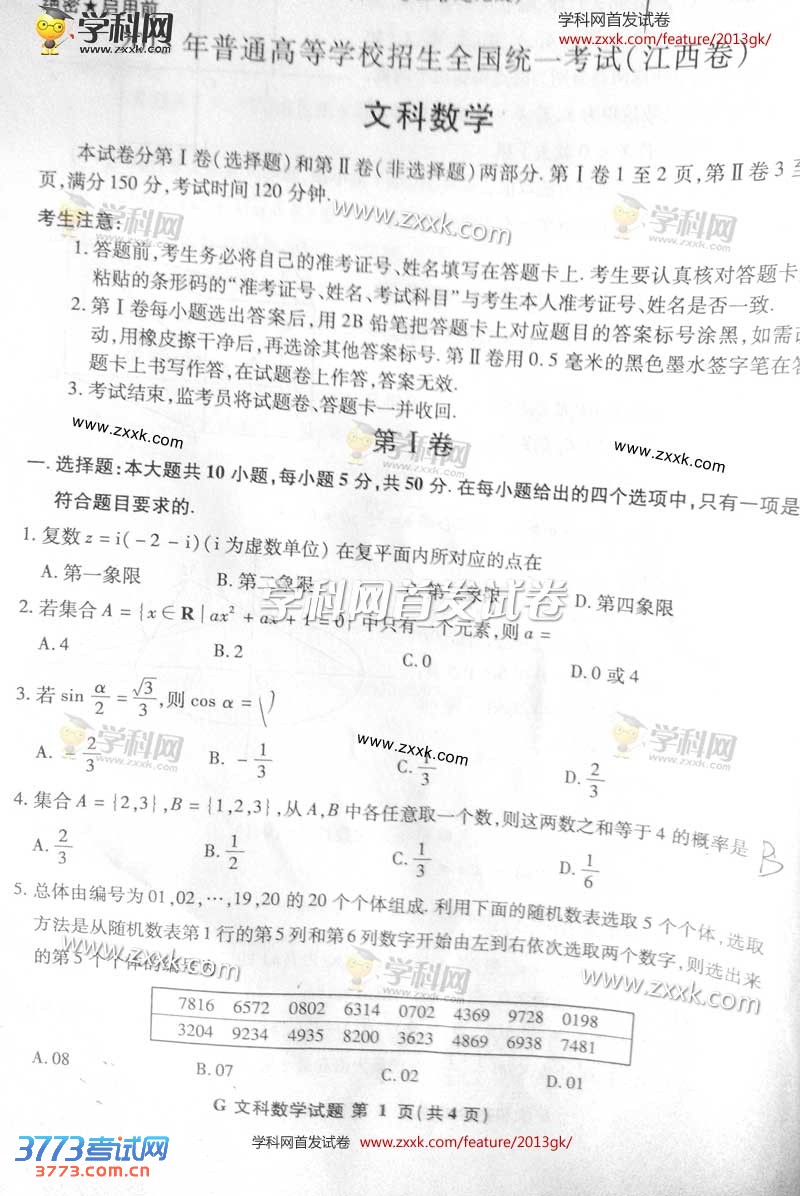 绝密★启用前
学科网首发试卷
www.zxxk.com/feature/2013gk/
学科网
zxxk.com
年普通高等学校招生全国统一考试(江西卷)
文科数学
本试卷分第Ⅰ卷(选择题)和第Ⅱ卷(非选择题)两部分.第Ⅰ卷1至2页,第Ⅱ卷3至
页,满分150分,考试时间120分钟.
www.zxxk.com
学科网
zxxk.com
学科网
zxxk.com
考生注意:
1.答题前,考生务必将自己的准考证号、姓名填写在答题卡上.考生要认真核对答题卡
粘贴的条形码的“准考证号、姓名、考试科目”与考生本人准考证号、姓名是否一致.
2.第Ⅰ卷每小题选出答案后,用2B铅笔把答题卡上对应题目的答案标号涂黑,如需
动,用橡皮擦干净后,再选涂其他答案标号.第Ⅱ卷用0.5毫米的黑色墨水签字笔在答
题卡上书写作答,在试题卷上作答,答案无效.
3.考试结束,监考员将试题卷、答题卡一并收回.
www.zxxk.com
学科网
zxxk.com
www.zxxk.com
第Ⅰ卷
一.选择题:本大题共10小题,每小题5分,共50分.在每小题给出的四个选项中,只有一项是
符合题目要求的.
1.复数z=i(-2-i)(i为虚数单位)在复平面内所对应的点在
A.第一象限 B.第二象限 第三象限 D.第四象限
学科网首发试卷
2.若集合A={x∈R|ax²+ax+1=0}中只有一个元素,则a=
A.4 B.2 C.0 D.0或4
3.若 sin α/2 = √3/3,则 cos α =
学科网
zxxk.com
www.zxxk.com
学科网
zxxk.com
A. -2/3 B. -1/3 C. 1/3 D. 2/3
4.集合A={2,3},B={1,2,3},从A,B中各任意取一个数,则这两数之和等于4的概率是 B
A. 2/3 B. 1/2 C. 1/3 D. 1/6
5.总体由编号为01,02,…,19,20的20个个体组成.利用下面的随机数表选取5个个体,选取
方法是从随机数表第1行的第5列和第6列数字开始由左到右依次选取两个数字,则选出来
的第5个个体的编号为
www.zxxk.com
学科网
zxxk.com
www.zxxk.com
7816 6572 0802 6314 0702 4369 9728 0198
3204 9234 4935 8200 3623 4869 6938 7481
A.08 B.07 C.02 D.01
G 文科数学试题 第 1 页(共4页)
3773考试网
3773.com.cn
学科网首发试卷 www.zxxk.com/feature/2013gk/